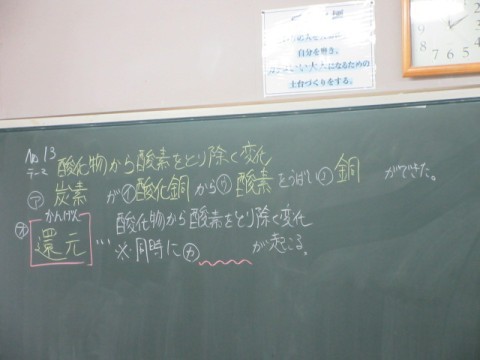 自分を磨き、
土台づくりをする。
No.13
テーマ 酸化物から酸素をとり除く変化
㋐炭素が㋑酸化銅から㋒酸素をうばい㋓銅ができた。
かんげん
㋔還元…酸化物から酸素をとり除く変化
※同時に㋕ が起こる。
2
3
4
5
6
7
8
9